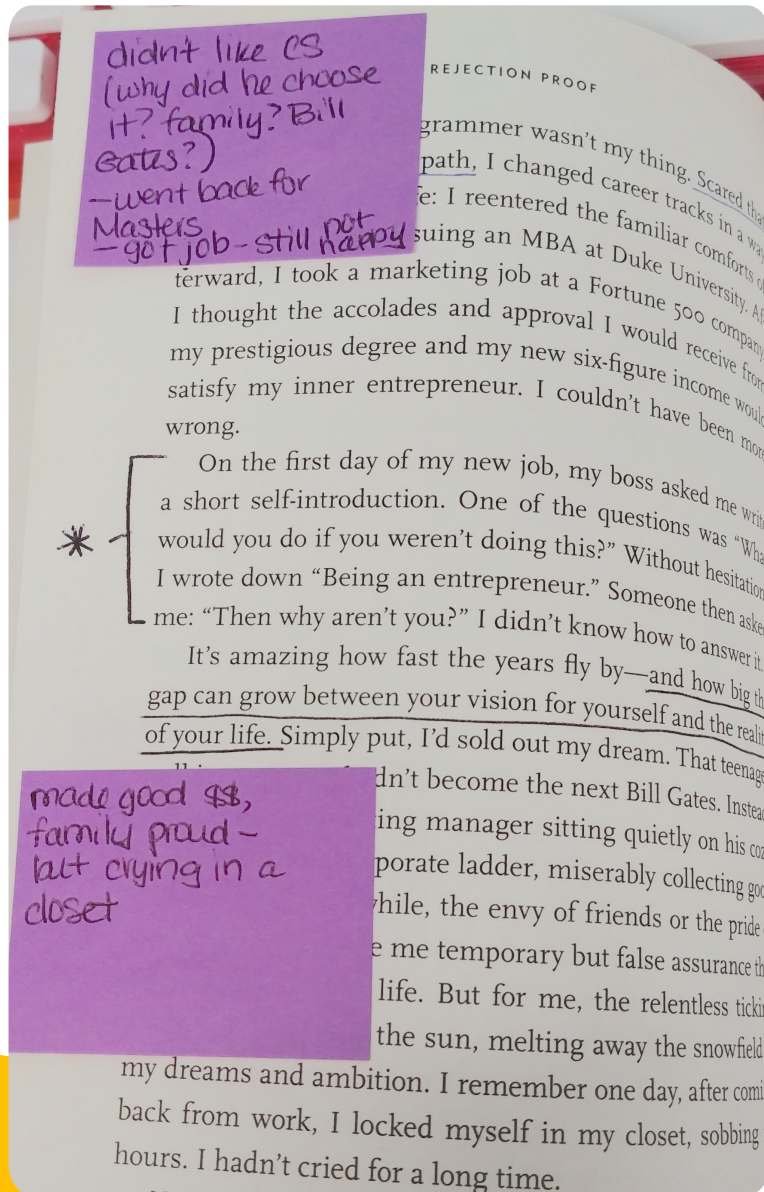 didn't like CS
(why did he choose
it? family? Bill
Gates?)
-went back for
Masters
-got job-still not happy
REJECTION PROOF
grammer wasn't my thing. Scared tha
path, I changed career tracks in a way
fe: I reentered the familiar comforts of
suing an MBA at Duke University. Af
terward, I took a marketing job at a Fortune 500 company
I thought the accolades and approval I would receive from
my prestigious degree and my new six-figure income would
satisfy my inner entrepreneur. I couldn't have been more
wrong.
On the first day of my new job, my boss asked me write
a short self-introduction. One of the questions was "Wha
would you do if you weren't doing this?" Without hesitation
I wrote down "Being an entrepreneur." Someone then aske
me: "Then why aren't you?" I didn't know how to answer it.
It's amazing how fast the years fly by—and how big th
gap can grow between your vision for yourself and the realit
of your life. Simply put, I'd sold out my dream. That teenage
made good $$,
family proud-
but crying in a
closet
dn't become the next Bill Gates. Instead
ing manager sitting quietly on his coz
porate ladder, miserably collecting goo
while, the envy of friends or the pride
e me temporary but false assurance th
life. But for me, the relentless tickin
the sun, melting away the snowfield
my dreams and ambition. I remember one day, after comi
back from work, I locked myself in my closet, sobbing
hours. I hadn't cried for a long time.